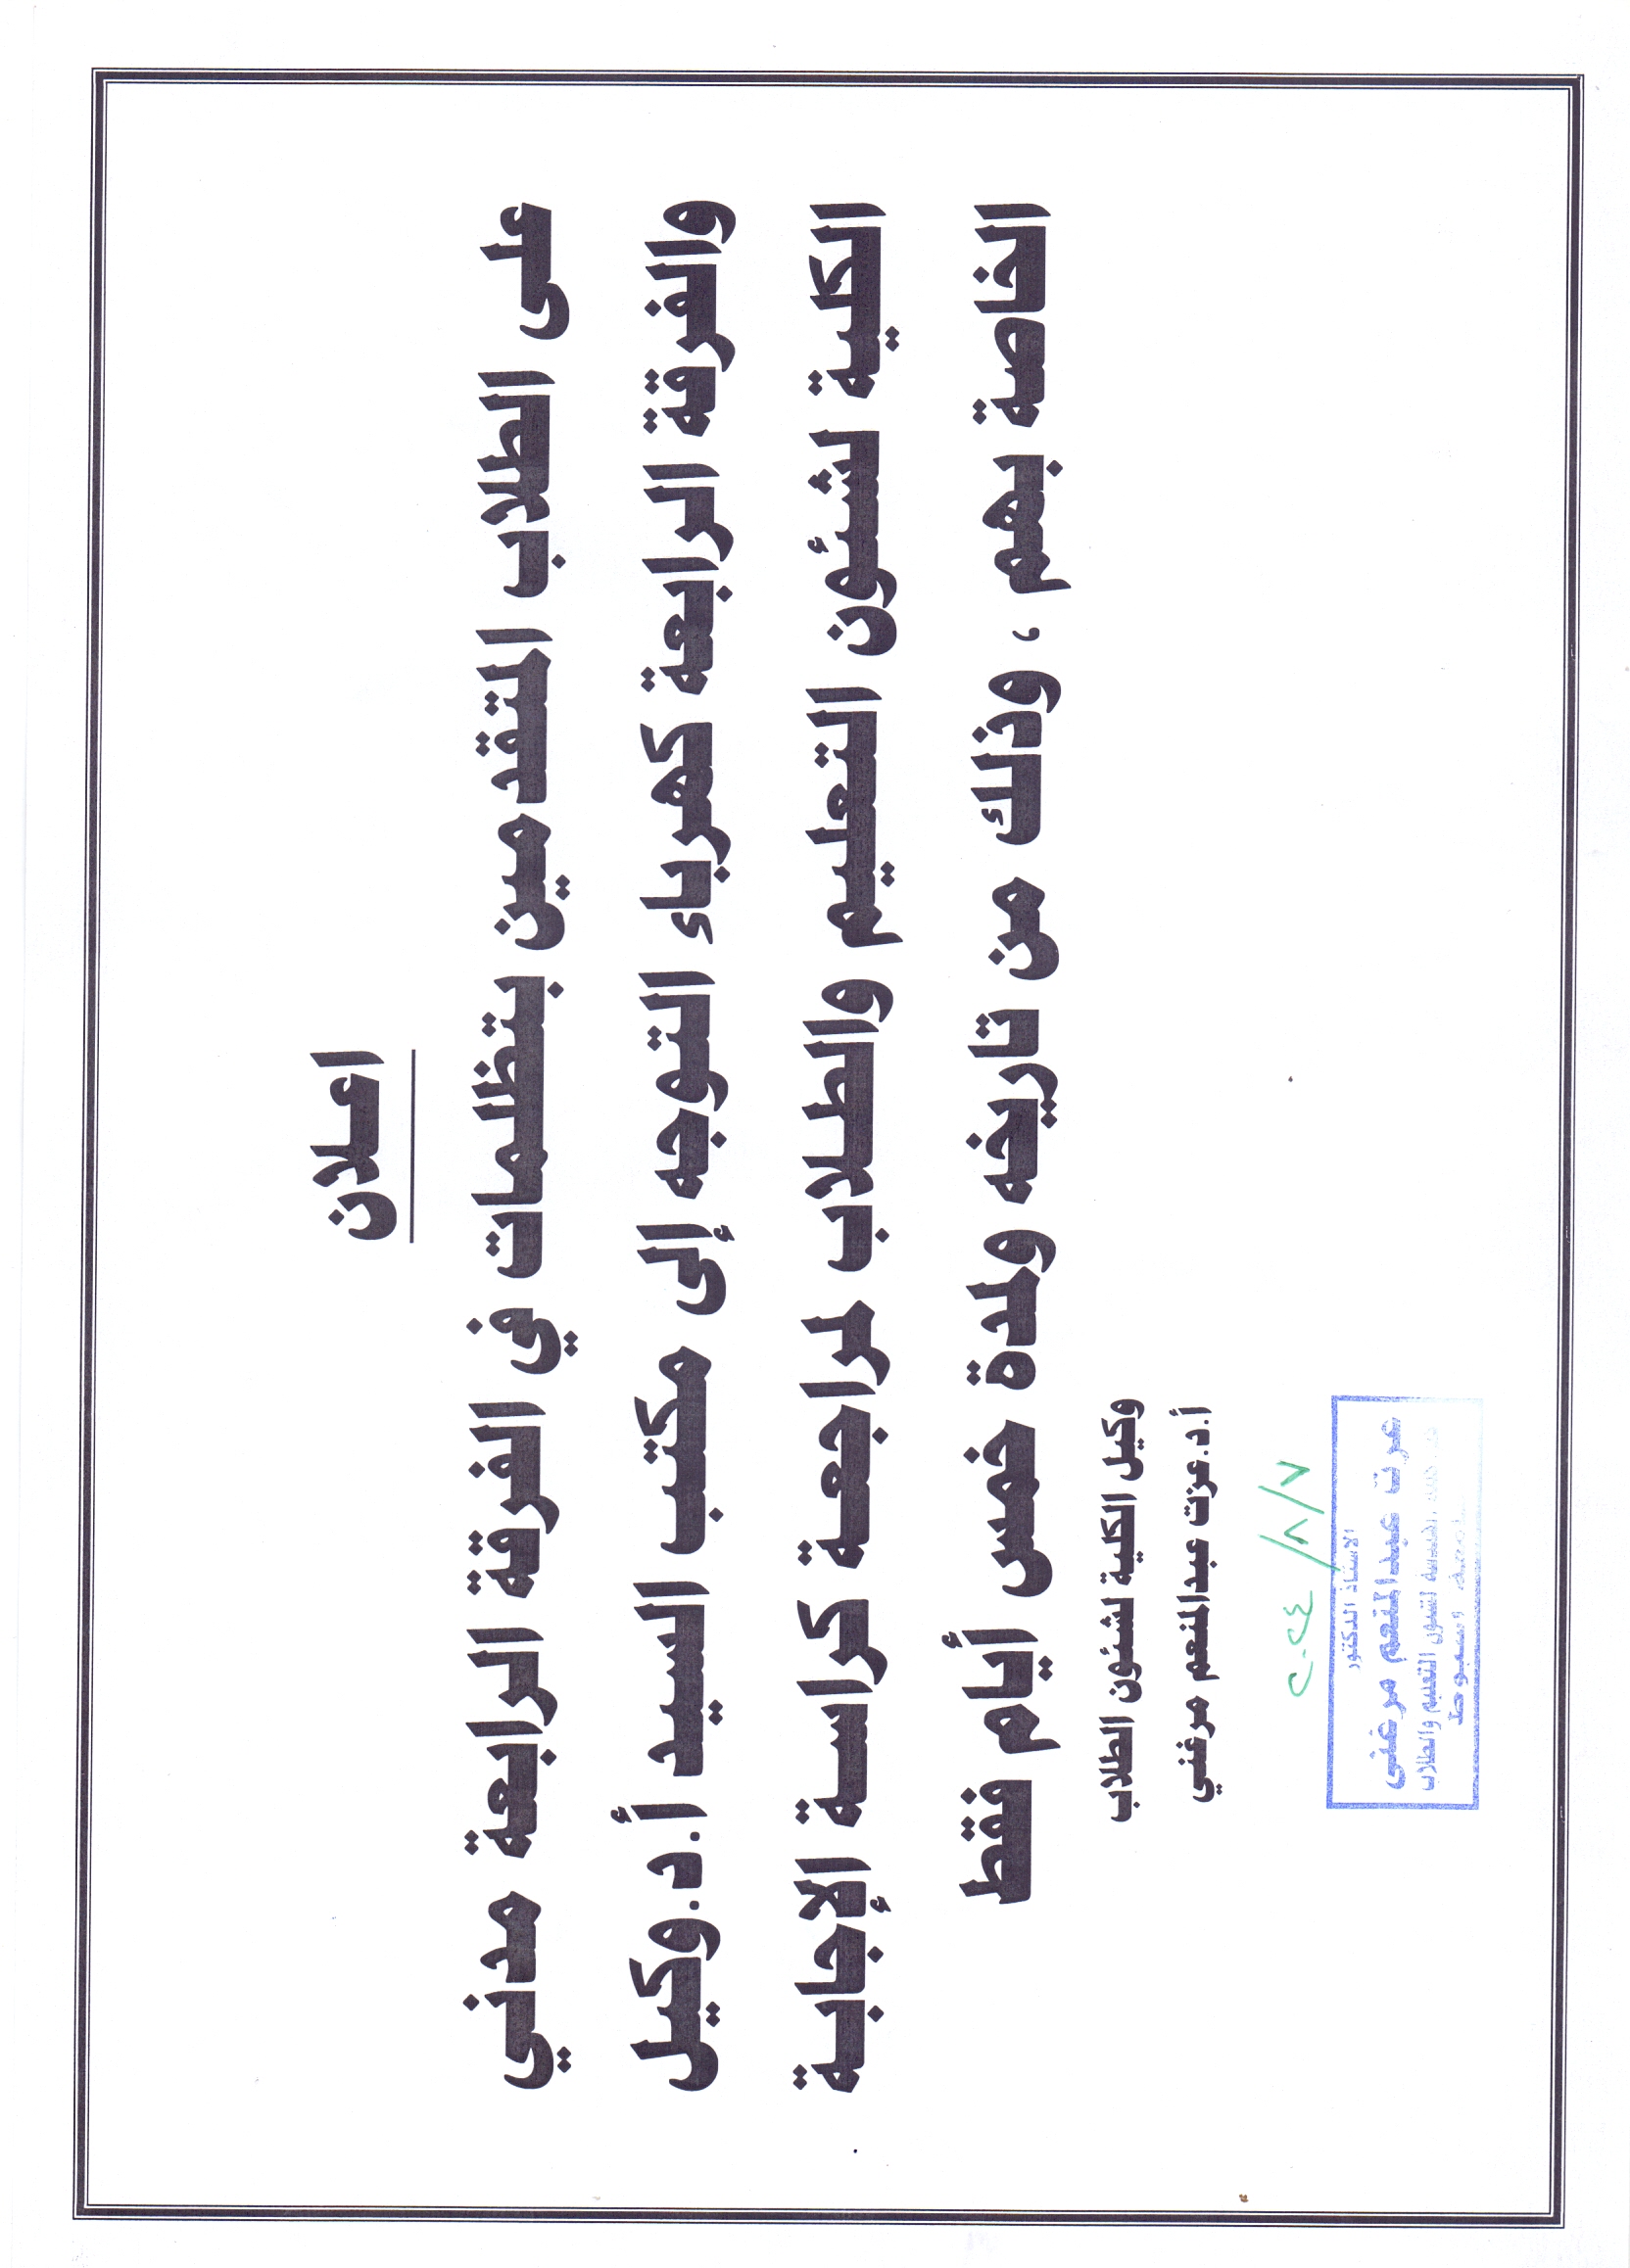 اعلان
على الطلاب المتقدمين بتظلمات في الفرقة الرابعة مدني
والفرقة الرابعة كهرباء التوجه إلى مكتب السيد أ.د.وكيل
الكلية لشئون التعليم والطلاب لمراجعة كراسة الإجابة
الخاصة بهم ، وذلك من تاريخه ولمدة خمس أيام فقط
وكيل الكلية لشئون الطلاب
أ.د.عزت عبدالمنعم مرغني
٢٠٢٤/٨/٧
الاستاذ الدكتور
عزت عبدالمنعم مرغنى
الهندسة لشئون التعليم والطلاب